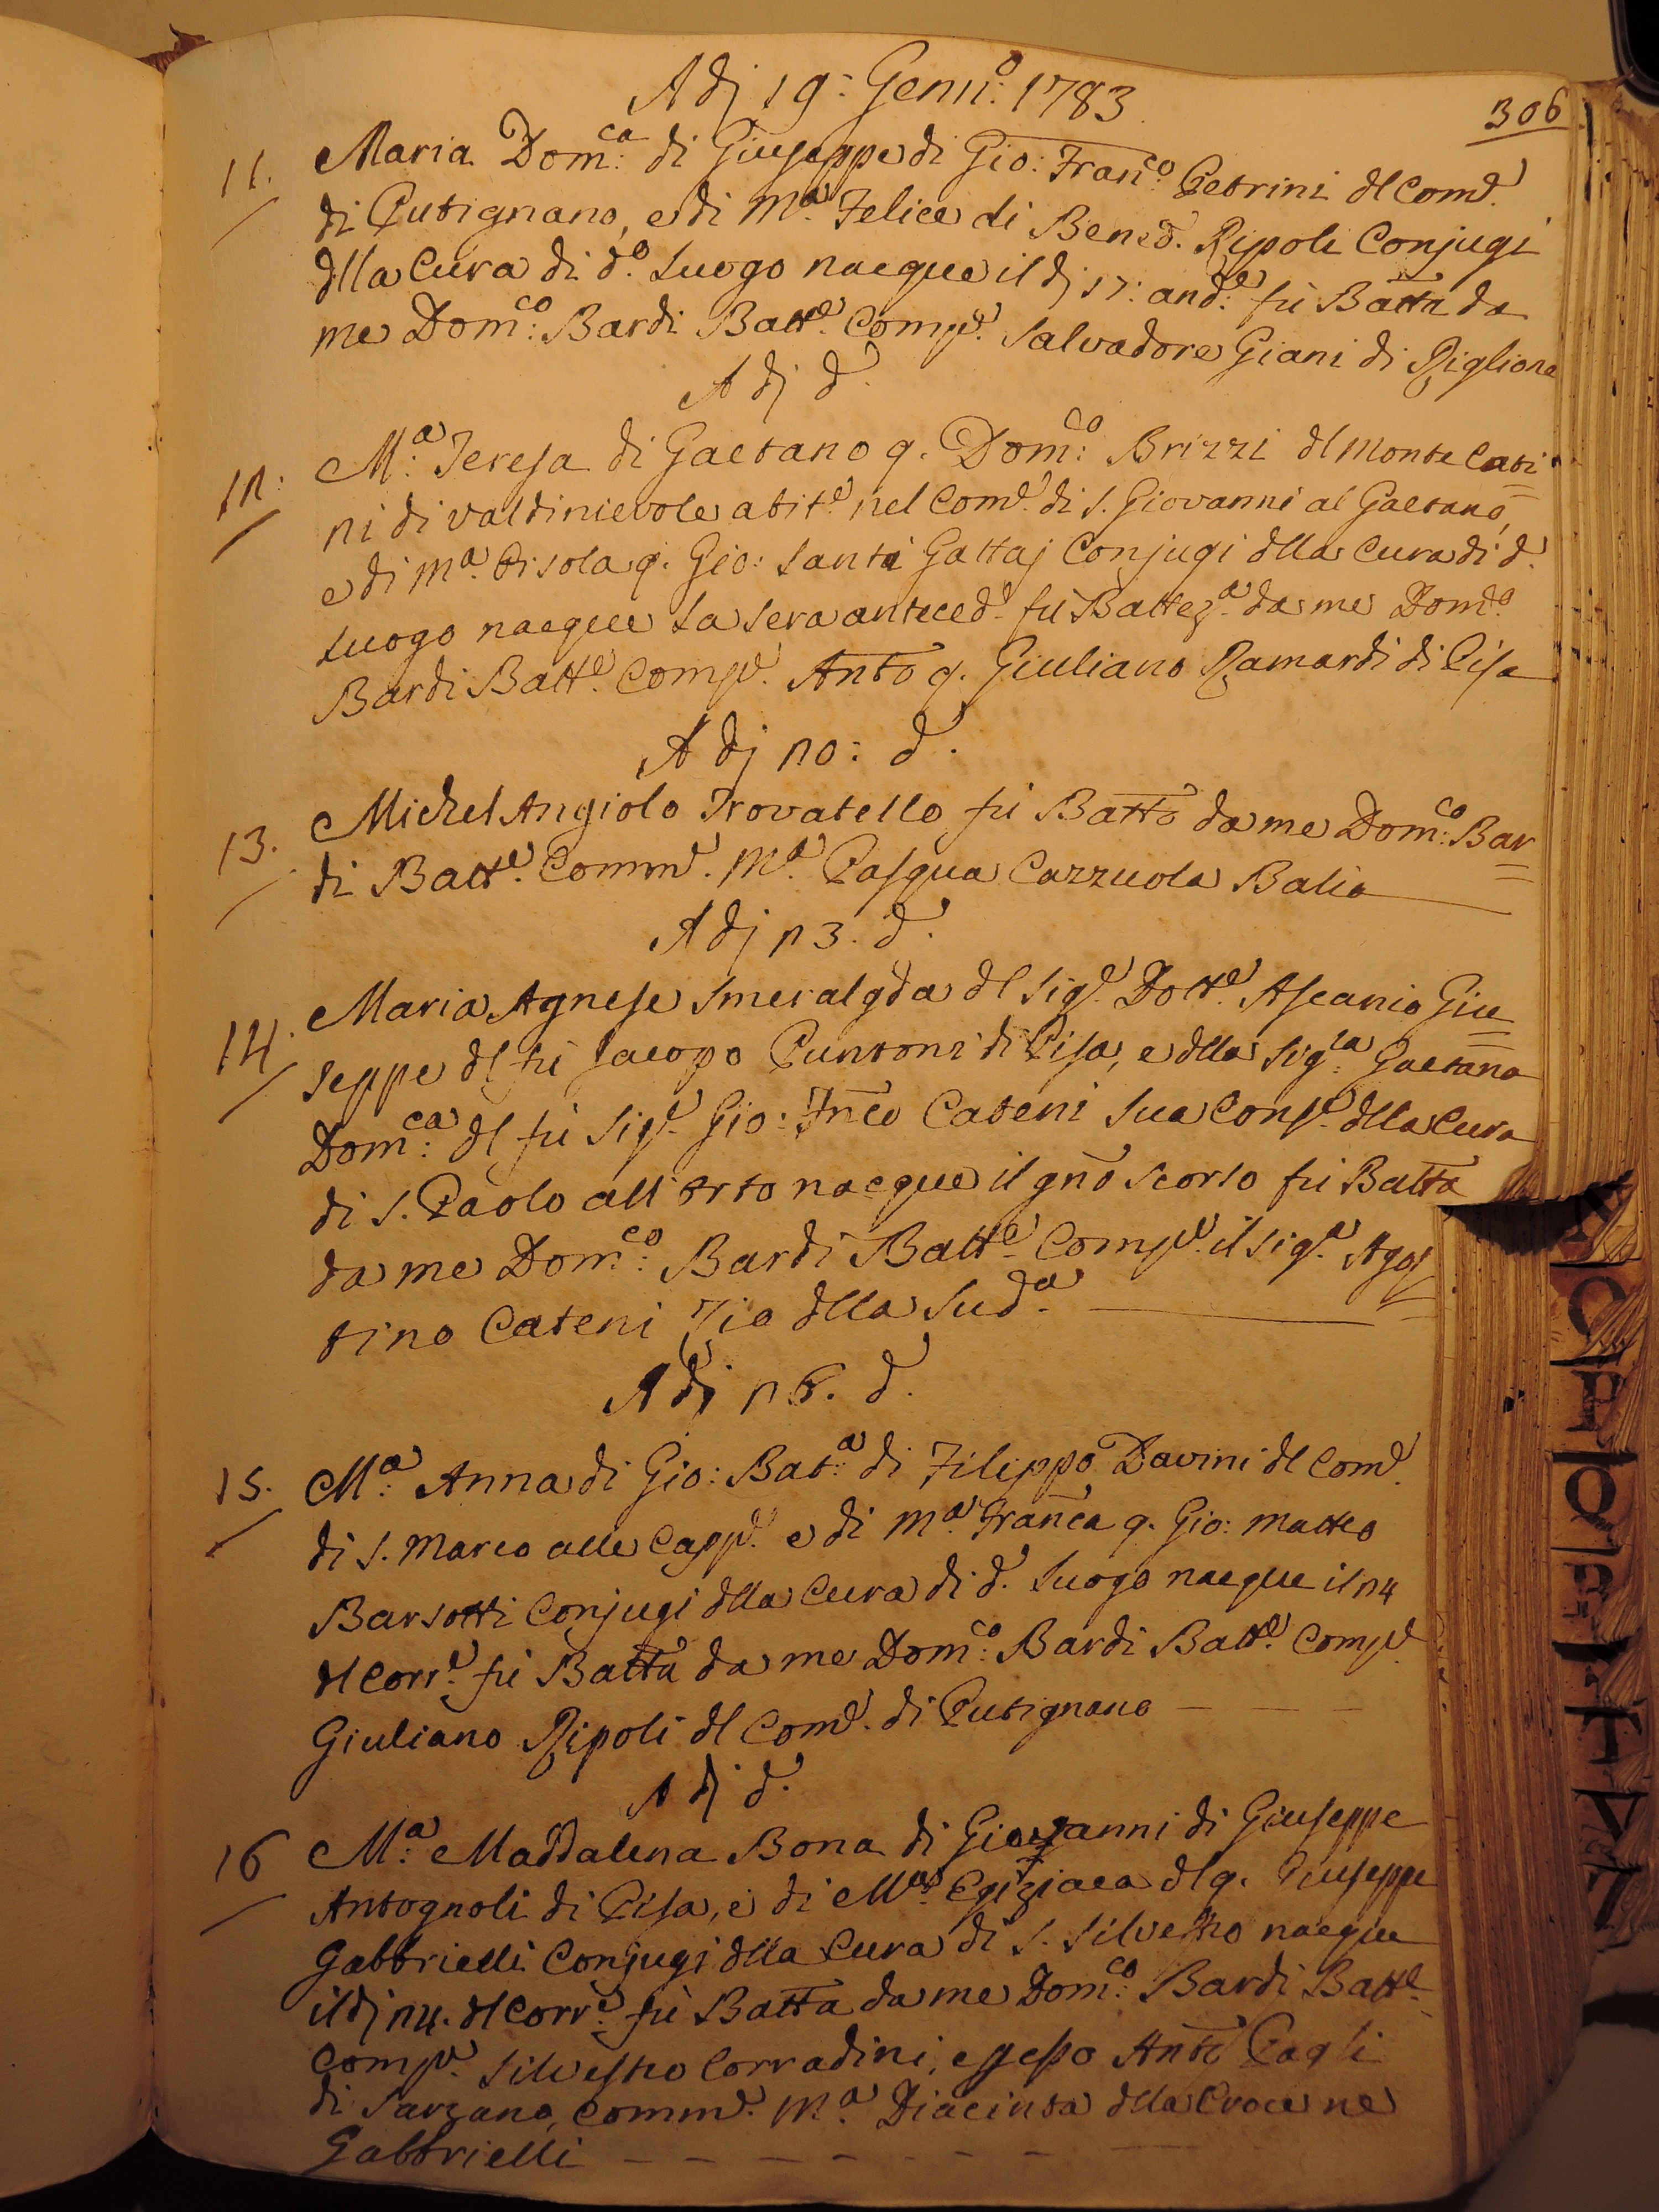 A dj 19: Genn:o 1783
306
11. Maria Dom:ca di Giuseppe di Gio: Fran:co Petrini dl Com.e
di Putignano, e di M.a Felice di Bened. Ripoli Conjugi
dlla Cura di d.o Luogo nacque il dj 17: and:e fù Batta da
me Dom:co Bardi Batt.e Comp.e Salvadore Giani di Riglione
A dj d.
12. M:a Teresa di Gaetano q. Dom:co Brizzi dl Monte Cati=
ni di Valdinievole abit.e nel Com.e di S. Giovanni al Gaetano,
e di M.a Orsola q. Gio: Santi Gattaj Conjugi dlla Cura di d.
Luogo nacque la sera anteced.e fù Battez.a da me Dom.co
Bardi Batt.e Comp.e Anto q. Giuliano Ramardi di Pisa
A dj 20: d.
13. Michel Angiolo Trovatello fù Batto da me Dom:co Bar=
di Batt.e Comm.e M.a Pasqua Cazzuola Balia
A dj 23. d.
14. Maria Agnese Smeralgda dl Sig.e Dott.e Ascanio Giu=
seppe dl fù Jacopo Puntoni di Pisa, e dlla Sig:ra Gaetana
Dom:ca dl fù Sig.e Gio: Frnco Cateni sua Cons.e dlla Cura
di S. Paolo all'Orto nacque il gno scorso fù Batta
da me Dom:co Bardi Batt.e Comp.e il Sig.e Agos=
tino Cateni Zio dlla Sud.a
A dj 26. d.
15. M:a Anna di Gio: Bat:a di Filippo Davini dl Com.e
di S. Marco alle Capp.e e di M.a Franca q. Gio: Matteo
Barsotti Conjugi dlla Cura di d. Luogo nacque il 24
dl Corr.e fù Batta da me Dom:co Bardi Batt.e Comp.e
Giuliano Ripoli dl Com.e di Putignano
A dj d.
16 M:a Maddalena Bona di Giovanni di Giuseppe
Antognoli di Pisa, e di M.a Egiziaca dl q. Giuseppe
Gabbrielli Conjugi dlla Cura di S. Silvestro nacque
il dj 24. dl Corr.e fù Batta da me Dom:co Bardi Batt.e
Comp.e Silvestro Corradini, e p esso Anto Pagli
di Sarzana, Comm.e M.a Diacinta dlla Croce ne
Gabbrielli